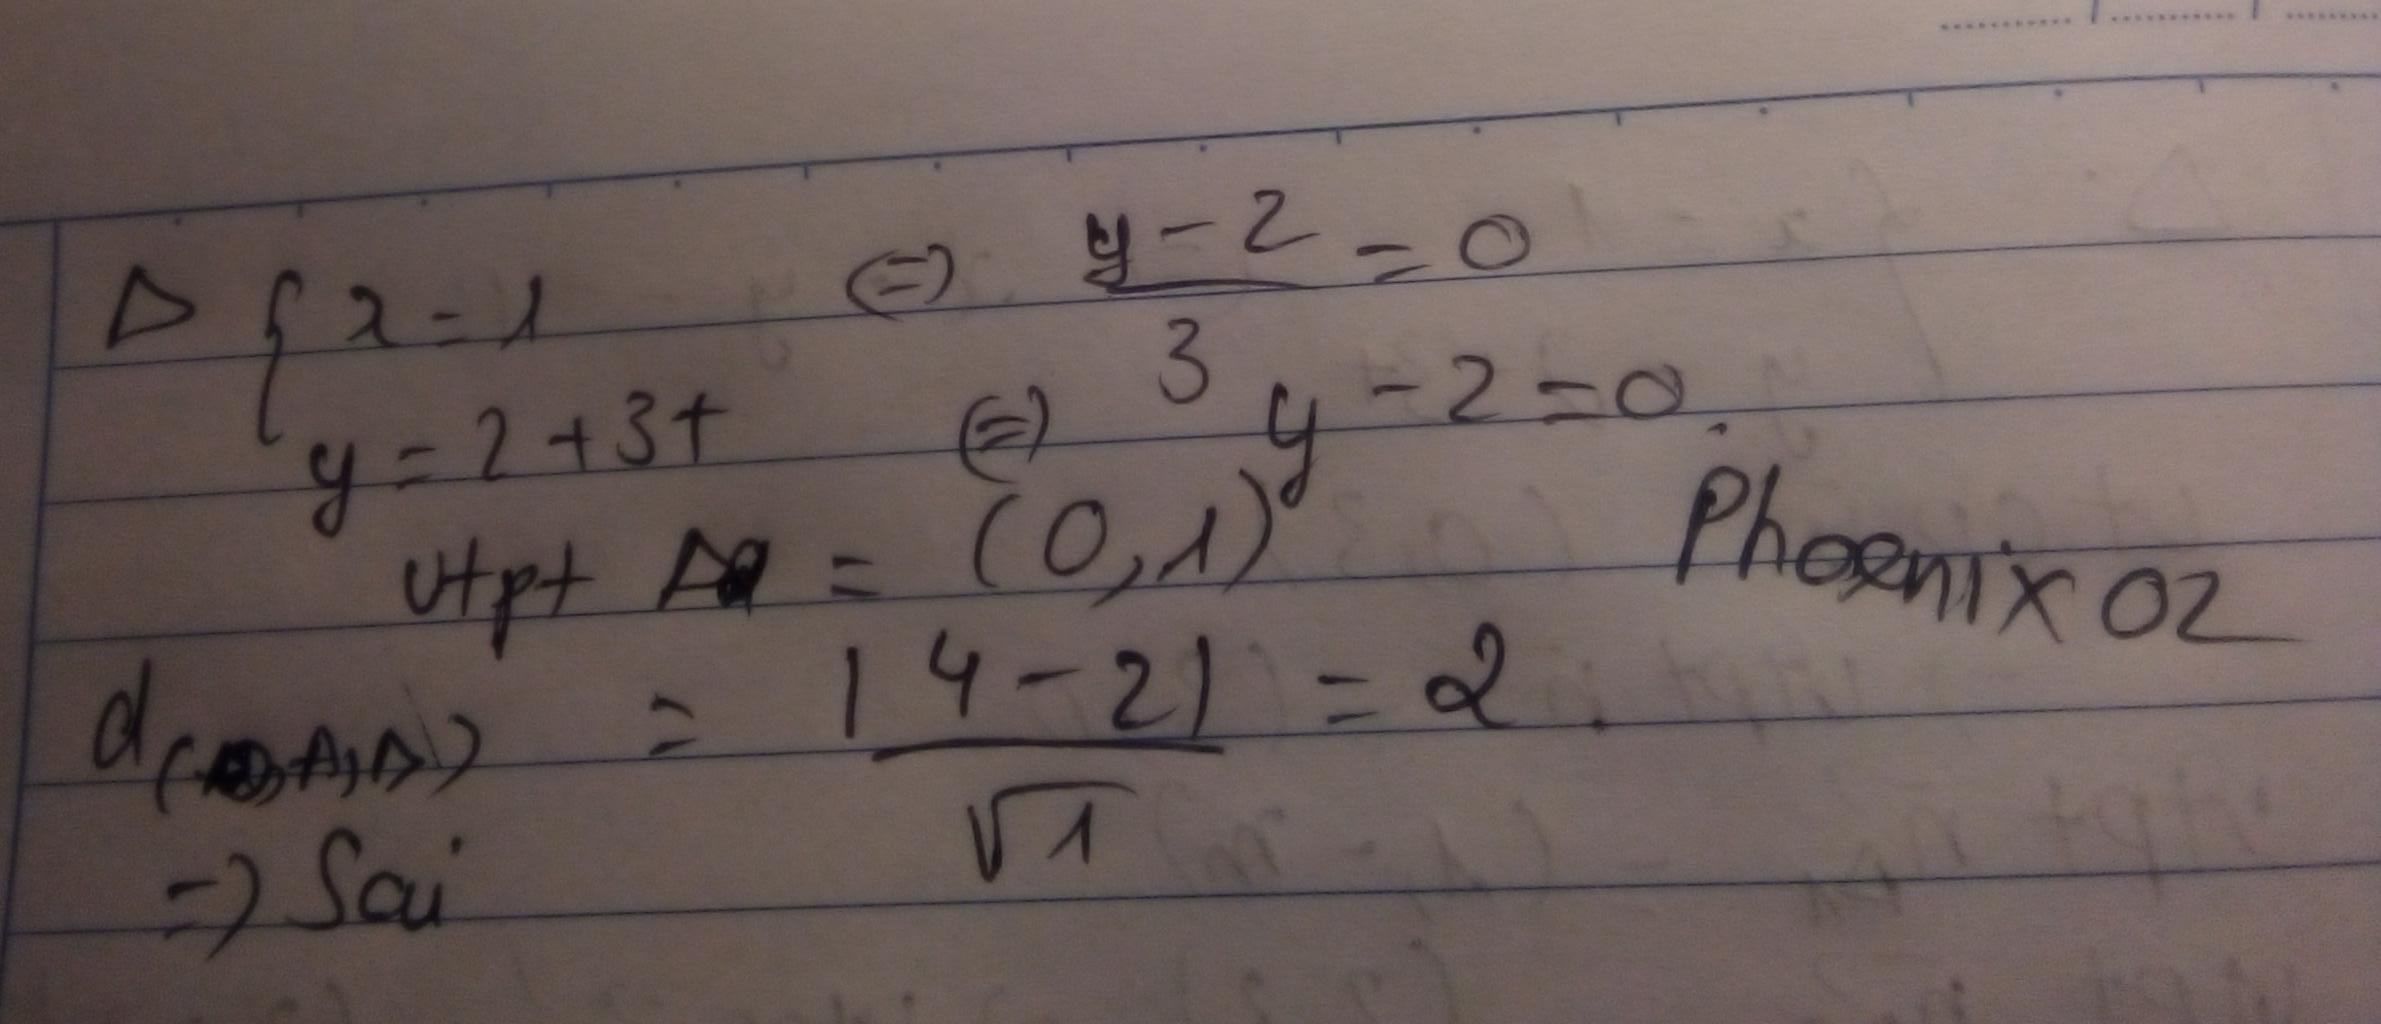 Δ { x = 1 ⇔ y - 2 / 3 = 0
y = 2 + 3t ⇔ y - 2 = 0.
vtpt Δ = (0, 1)
Phoenix02
d(A, Δ) = |4 - 2| / √1 = 2.
=> Sai